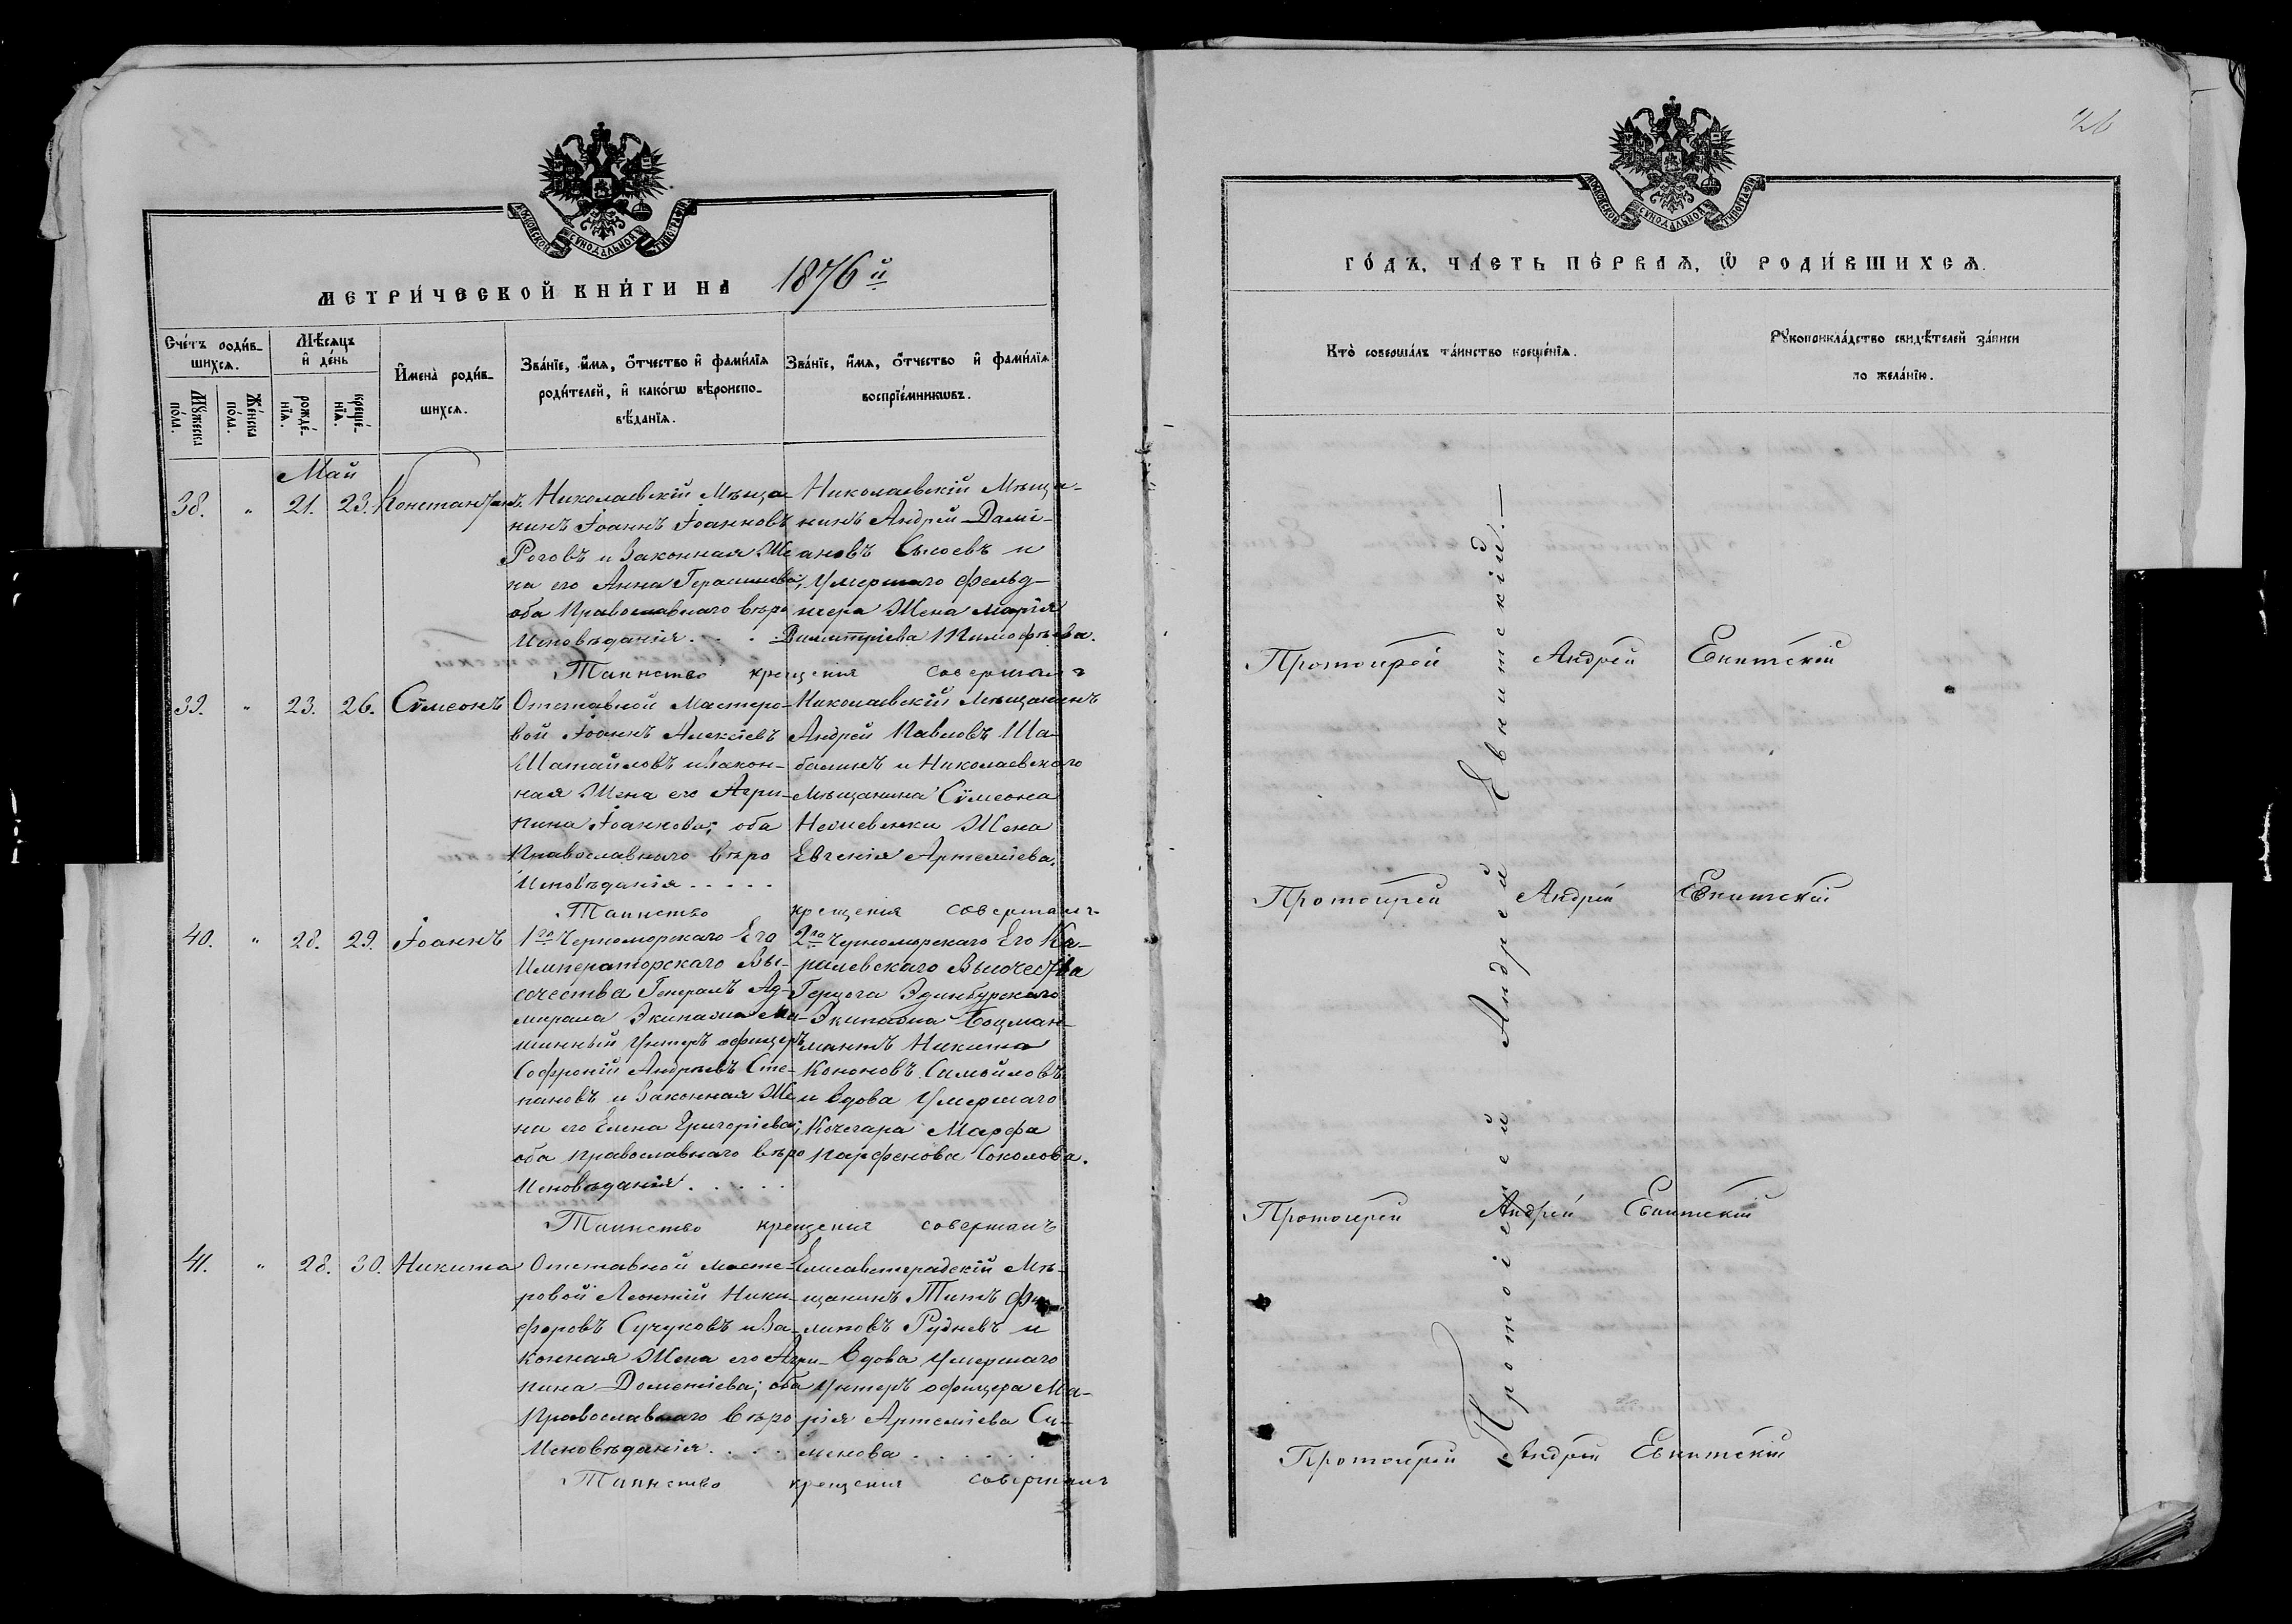 МОСКОВСКОЙ СѴНОДАЛЬНОЙ ТИПОГРАФІИ
МЕТРИ́ЧЕСКОЙ КНИ́ГИ НА 1876й
Сче́тъ роди́в-
шихсѧ.
Мꙋ́жеска по́ла.
Же́нска по́ла.
Мѣ́сѧцъ
и҆ де́нь
рожде́-нїѧ.
креще́-нїѧ.
И҆мена̀ роди́в-
шихсѧ.
Зва́нїе, и҆́мѧ, ѻ҆́тчество и҆ фами́лїѧ
роди́телей, и҆ како́гѡ вѣроиспо-
вѣ́данїѧ.
Зва́нїе, и҆́мѧ, ѻ҆́тчество и҆ фами́лїѧ
воспрїе́мникѡвъ.
Май
38. " 21. 23. Константинъ
Николаевскій Мѣща-
нинъ Іоаннъ Іоанновъ
Роговъ и Законная Же
на его Анна Герасимова,
оба Православнаго вѣро
Исповѣданія . . .
Николаевскій Мѣща-
нинъ Андрей Дамі-
ановъ Сысоевъ и
Умершаго Фельд-
шера Жена Марія
Димитріева Тимофѣева.
Таинство крещенія совершалъ
39. " 23. 26. Сѵмеонъ
Отставной Мастеро-
вой Іоаннъ Алексіевъ
Шатайловъ и Закон-
ная Жена его Агри-
пина Іоаннова; оба
Православнаго вѣро
Исповѣданія . . . . .
Николаевскій Мѣщанинъ
Андрей Павловъ Ша-
балинъ и Николаевскаго
Мѣщанина Сѵмеона
Жена
Евгенія Артеміева.
Таинство крещенія совершалъ
40. " 28. 29. Іоаннъ
1го Черноморскаго Его
Императорскаго Вы-
сочества Генералъ Ад-
мирала Экипажа Ма-
шинный Унтеръ офицеръ
Софроній Андреевъ Сте-
пановъ и Законная Же
на его Елена Григоріева;
оба Православнаго вѣро
Исповѣданія . . . . .
2го Черноморскаго Его Ко-
ролевскаго Высочества
Герцога Эдинбурскаго
Экипажа Боцман-
матъ Никита
Кононовъ Самойловъ
и вдова Умершаго
Кочегара Марфа
Парфенова Соколова.
Таинство крещенія совершалъ
41. " 28. 30. Никита
Отставной Масте-
ровой Леонтій Ники-
форовъ Сучуковъ и За-
конная Жена его Агри-
пина Дометіева; оба
Православнаго вѣро
Исповѣданія . . . .
Елисаветградскій Мѣ-
щанинъ Титъ Фи-
липовъ Рудневъ и
вдова Умершаго
Унтеръ офицера Ма-
рія Артеміева Си-
менова . . . . . .
Таинство крещенія совершалъ
МОСКОВСКОЙ СѴНОДАЛЬНОЙ ТИПОГРАФІИ
ГО́ДЪ, ЧА́СТЬ ПЕ́РВАѦ, Ѽ РОДИ́ВШИХСѦ.
Кто̀ соверша́лъ та́инство креще́нїѧ.
Рꙋкоприкла́дство свидѣ́телей за́писи
по жела́нїю.
Протоіерей Андрей Евнитскій
Протоіерей Андрей Евнитскій
Протоіерей Андрей Евнитскій
Протоіерей Андрей Евнитскій
Протоіерей Андрей Евнитскій.